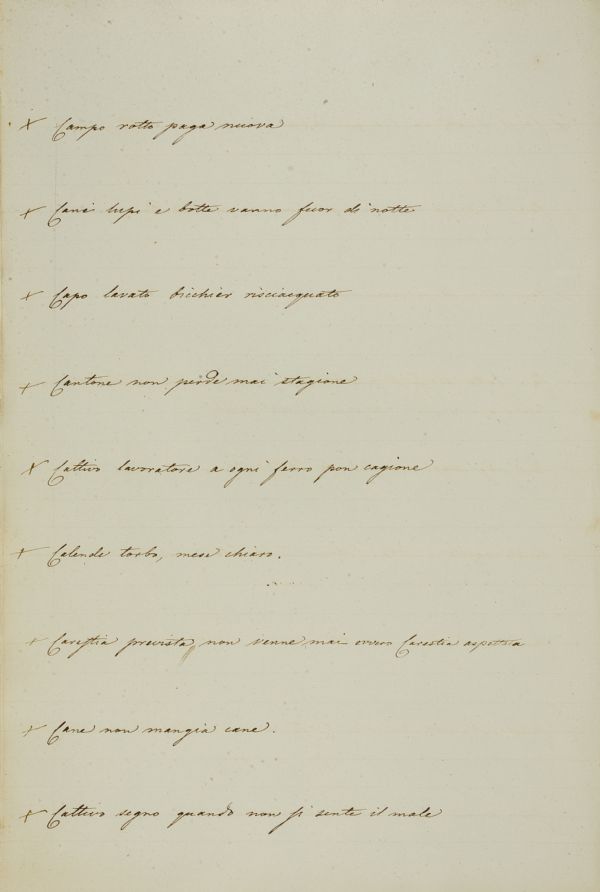 x Campo rotto paga nuova
x Cani lupi e botte vanno fuor di notte
x Capo lavato bicchier risciacquato
x Cantone non perde mai stagione
x Cattivo lavoratore a ogni ferro pon cagione
x Calende torbo, mese chiaro.
x Carestia prevista, non venne mai ovvero Carestia aspettata
x Cane non mangia cane.
x Cattivo segno quando non si sente il male